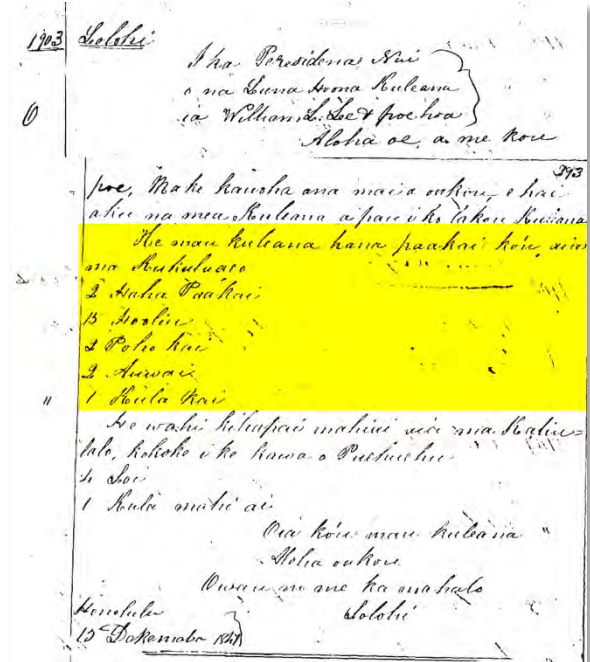 1903 Lolohi
I ka Peresidena Nui
o na Luna Hoona Kuleana
ia William L. Lee & poe hoa
Aloha oe, a me kou
293
poe, Make kauoha ana mai a oukou, e hai
aku na mea Kuleana a pau i ko lakou Kuleana
He mau kuleana hana paakai ko'u, aia
ma Kukuluaeo
2 Haha Paakai
15 Hooliu
2 Poho kai
2 Auwai
1 Kula kai
He wahi kihapai mahiai aia ma Kaliu=
lalo, kokoke i ke hawa o Puehuehu
4 Loi
1 Kula mahi ai
Oia ko'u mau kuleana
Aloha oukou
Owau no me ka mahalo
Honolulu Lolohi
15 Dekemaba 1847